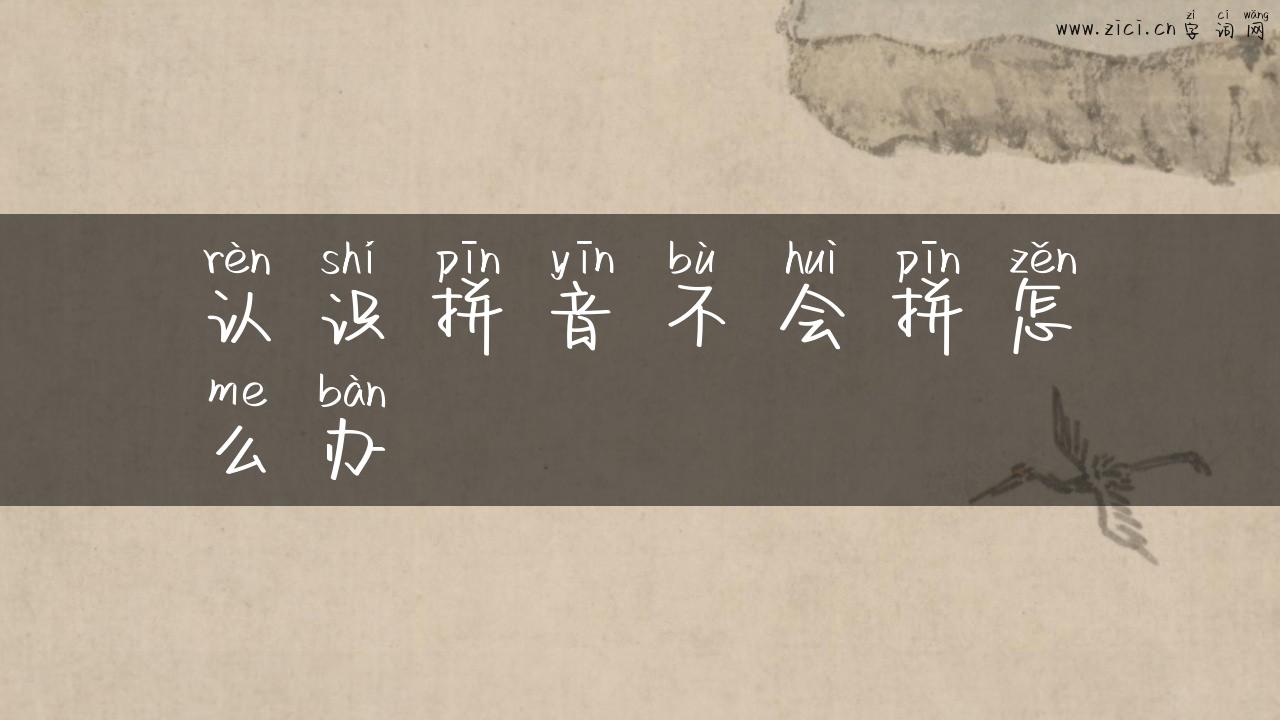 zì cí wǎng
www.zici.cn 字 词 网
rèn shí pīn yīn bù huì pīn zěn
认 识 拼 音 不 会 拼 怎
me bàn
么 办